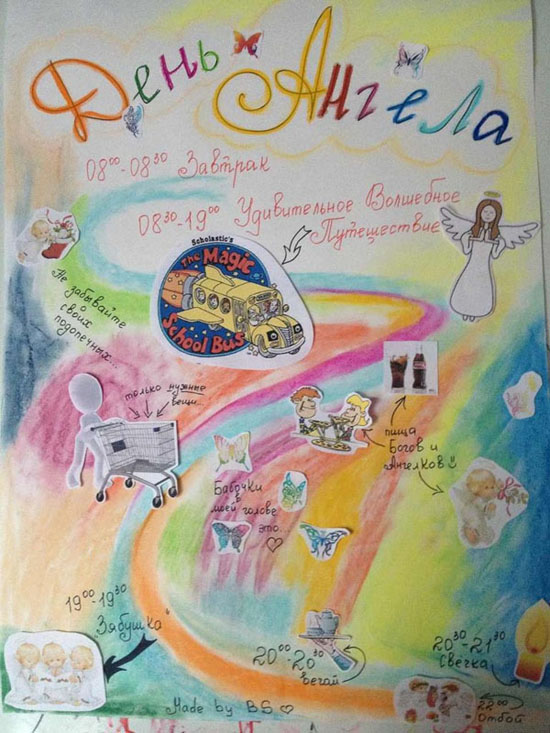 День Ангела
08⁰⁰-08³⁰ Завтрак
08³⁰-19⁰⁰ Удивительное Волшебное
Путешествие
Scholastic's
The Magic
School Bus
Не забывайте
о
своих
подопечных...
только нужные
вещи...
пища
Богов и
Ангелков
Бабочки
в
моей голове
это...
19⁰⁰-19³⁰
Зябушка
20⁰⁰-20³⁰
бегай
20³⁰-21³⁰
Свечка
22⁰⁰
Отбой
Made by BS